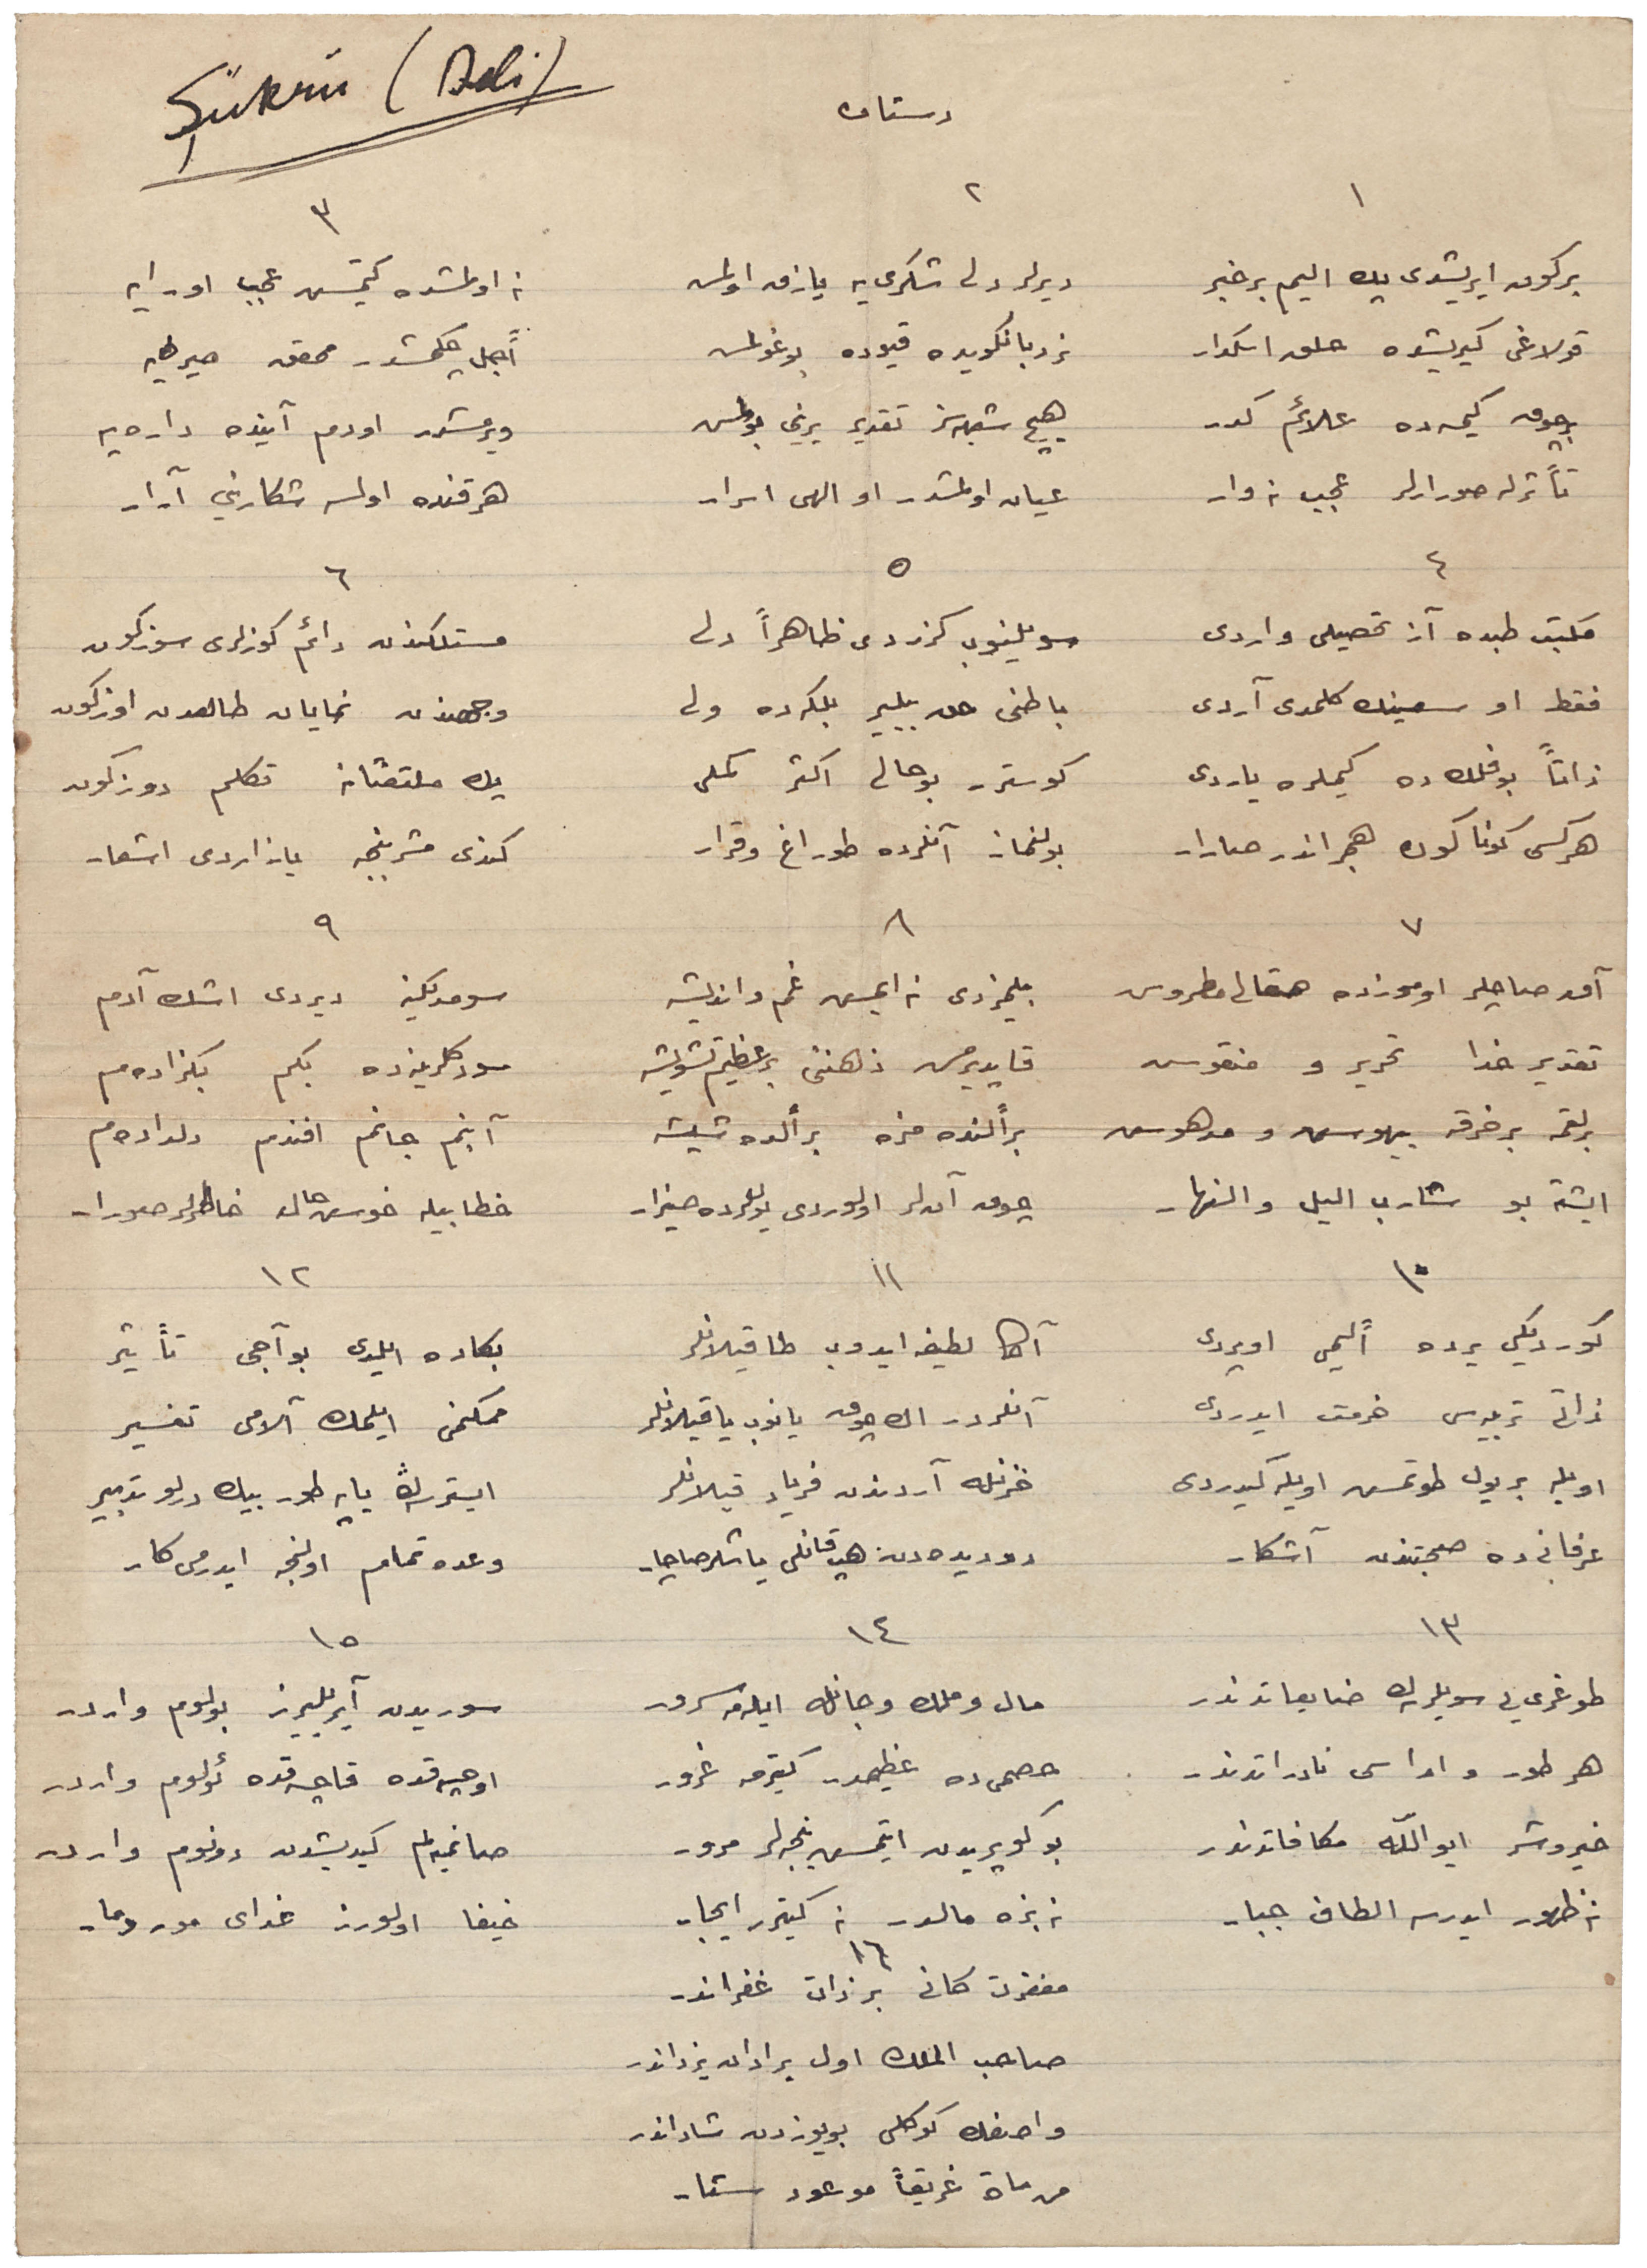 Şükrü (Deli)
دستان
١
بر كون ایریشدی پك الیم بر خبر
قولاغی كیریشده خلق اسكدار
چوق كیمسه ده علائم كدر
تأثرله صورارلر عجب نه وار
٢
دیرلر دلی شكری یه یازق اولمش
نردبانكویده قیوده بوغولمش
هیچ شبهه سز تقدیر یرینی بولمش
عیان اولمشدر او الهی اسرار
٣
نه اولمشده كیتمش عجب اورایه
أجل چكمشدر محقق
ویرمشدر اودم آینده دارەیه
هر قنده اولسه شكارینی آرار
٤
مكتب طبده آز تحصیلی واردی
فقط او سمینك كلمدی آردی
ذاتاً بو فلك ده كیملره یاردی
هركسی كوناكون هجراندر صارار
٥
سویلینوب كزردی ظاهراً دلی
باطنی حق بیلیر بلكه ده ولی
كوسترر بو حالی اكثر كملی
بولنماز آنلرده طوراغ و قرار
٦
مستلكندن دائم كوزلری سوزكون
وجهندن نمایان طالعدن اوزكون
پك ملتفتانه تكلم دوزكون
كندی مشربنجه یازاردی اشعار
٧
آق صاچلر اوموزده صقالی مطروش
تقدیر خدا تحریر و منقوش
بر لقمه بر خرقه بیهوش و مدهوش
ایشته بو شارب الیل والنهار
٨
بیلمزدی نه ایمش غم و اندیشه
قاپدیرمش ذهننی بر عظیم تشویشه
بر ألنده مزه بر ألده شیشه
چوق آدملر اولوردی یوللرده خیزار
٩
سومدیكنه دیردی اشك آدم
سودكلرینه ده بكم بكزاده م
آینم جانم افندم دلداده م
خطا بیله خوش حال خاطرلر صورار
١٠
كوردیكی یرده ألیمی اوپردی
ذاتی تربیه سی خرمت ایدردی
اویله بر یول طوتمش اویله كیدردی
عرفانی ده صحبتندن آشكار
١١
آكا لطیفه ایدوب طاقیلانلر
آنلردر الك چوق یانوب یاقیلانلر
حزنله آردندن فریاد قیلانلر
دو دیده دن هپ قانلی یاشلر صاچار
١٢
بكاده ایلدی بو آجی تأثیر
ممكنمی ایلمك آلامی تفسیر
ایسترسەڭ یاپه طور بیك درلو تدبیر
وعده تمام اولنجه ایدرمی كار
١٣
طوغری یی سویلرسەك ضایعاتدندر
هر طور و اداسی نادراتدندر
خیر و شر ایوالله مكافاتدندر
نه ظهور ایدرسه الطاف جبار
١٤
مال و ملك و جانله ایلمه سرور
خصمی ده عظیمدر كیترمه غرور
بو كوپریدن ایتمش نیجه لر مرور
نه بزه مالدر نه كیترر ایجار
١٥
سوریدن آیریلییرز بولوم واردر
اوچسەقده قاچسەقده ئولوم واردر
صانمیەلم كیدیشدن دونوم واردر
حیفا اولورز غدای مور و مار
١٦
مغفرت كانی بر ذات غفراندر
صاحب الملك اول بر ادان یزداندر
واصفك كوكلی بو یوزدن شاداندر
من مات غریقاً موعود ستار